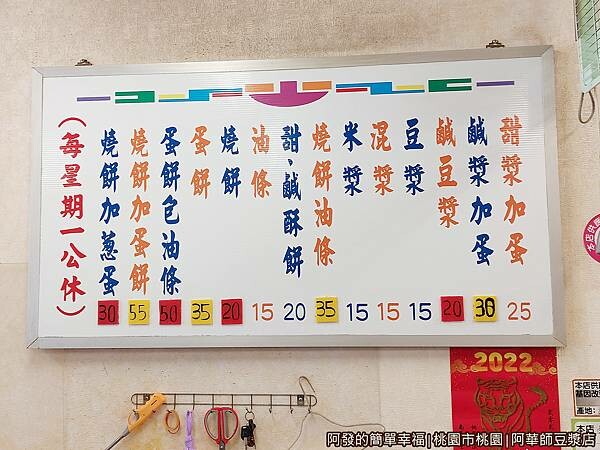 甜漿加蛋 25
鹹漿加蛋 30
鹹豆漿 20
豆漿 15
混漿 15
米漿 15
燒餅油條 35
甜、鹹酥餅 20
油條 15
燒餅 20
蛋餅 35
蛋餅包油條 50
燒餅加蛋餅 55
燒餅加蔥蛋 30
（每星期一公休）
2022
本店供
基因改
產地:
本店
阿發的簡單幸福|桃園市桃園|阿華師豆漿店